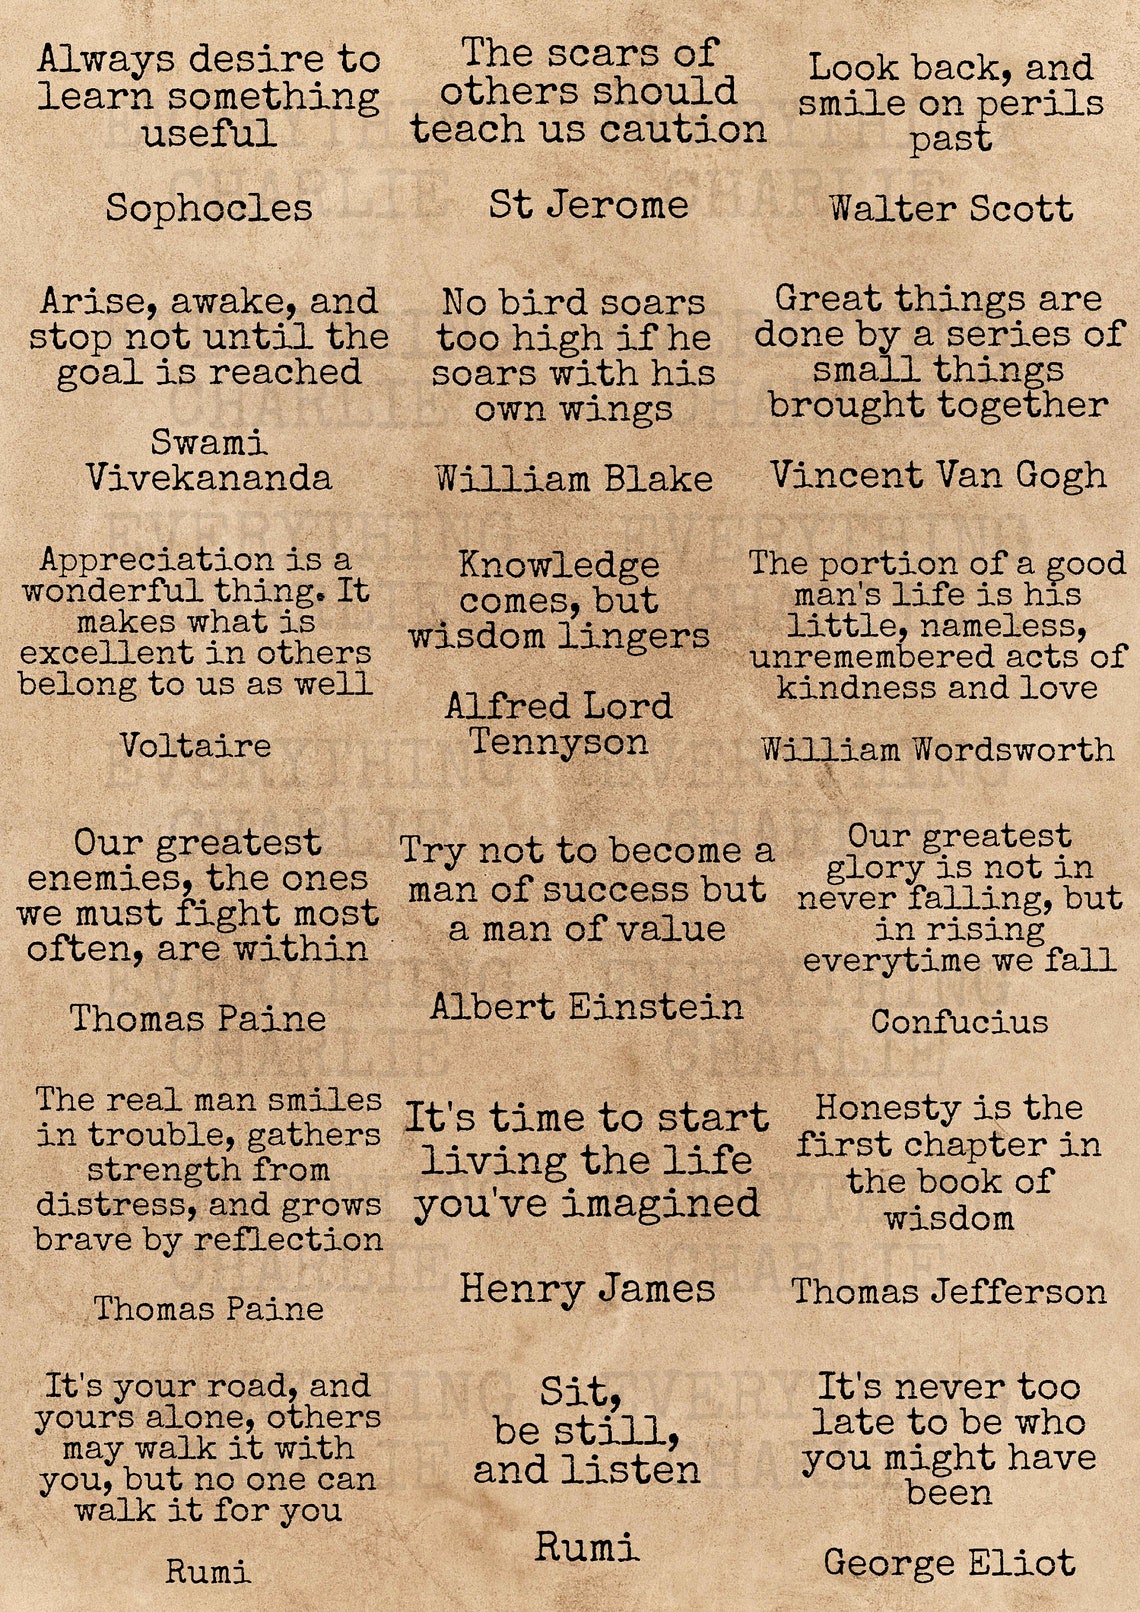 Always desire to
learn something
useful
Sophocles
The scars of
others should
teach us caution
St Jerome
Look back, and
smile on perils
past
Walter Scott
Arise, awake, and
stop not until the
goal is reached
Swami
Vivekananda
No bird soars
too high if he
soars with his
own wings
William Blake
Great things are
done by a series of
small things
brought together
Vincent Van Gogh
Appreciation is a
wonderful thing. It
makes what is
excellent in others
belong to us as well
Voltaire
Knowledge
comes, but
wisdom lingers
Alfred Lord
Tennyson
The portion of a good
man's life is his
little, nameless,
unremembered acts of
kindness and love
William Wordsworth
Our greatest
enemies, the ones
we must fight most
often, are within
Thomas Paine
Try not to become a
man of success but
a man of value
Albert Einstein
Our greatest
glory is not in
never falling, but
in rising
everytime we fall
Confucius
The real man smiles
in trouble, gathers
strength from
distress, and grows
brave by reflection
Thomas Paine
It's time to start
living the life
you've imagined
Henry James
Honesty is the
first chapter in
the book of
wisdom
Thomas Jefferson
It's your road, and
yours alone, others
may walk it with
you, but no one can
walk it for you
Rumi
Sit,
be still,
and listen
Rumi
It's never too
late to be who
you might have
been
George Eliot
EVERYTHING EVERYTHING
CHARLIE CHARLIE